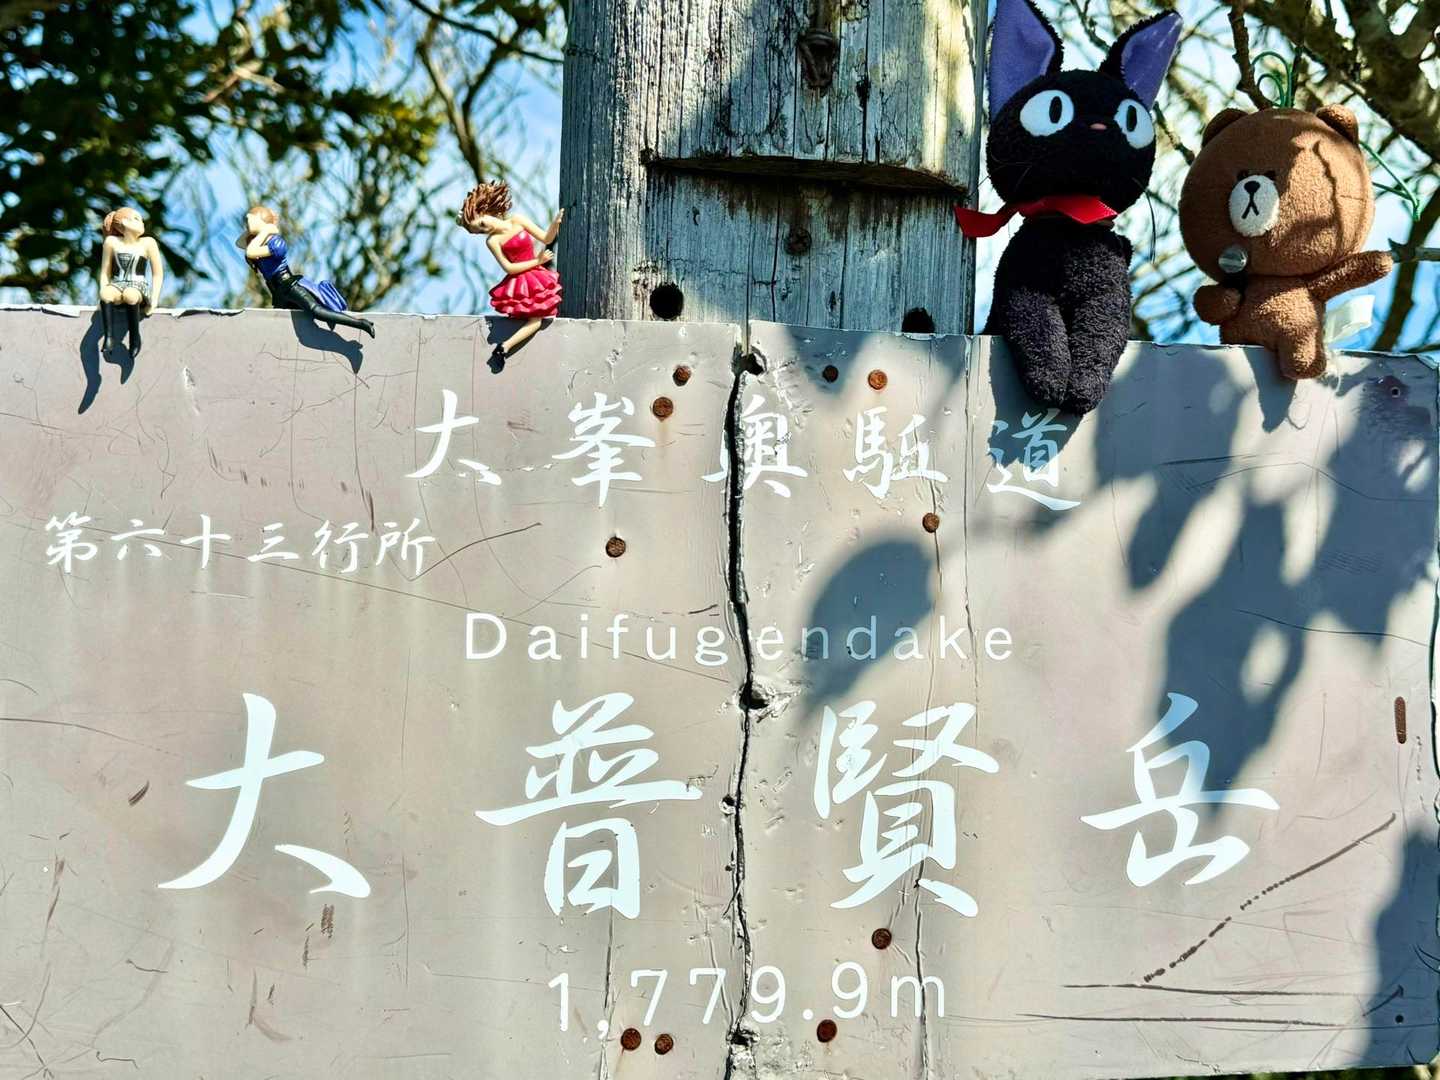 大峯奥駈道
第六十三行所
Daifugendake
大普賢岳
1,779.9m